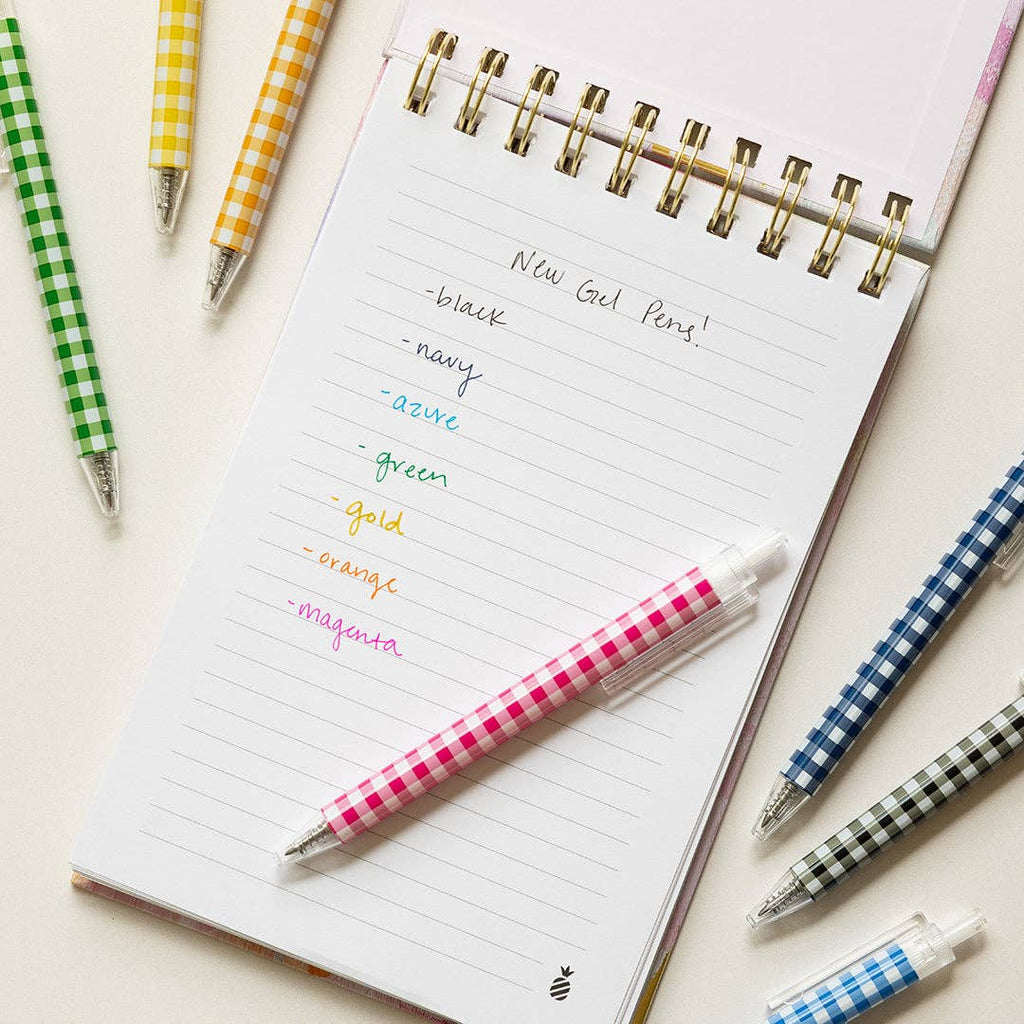 New Gel Pens!
-black
-navy
-azure
-green
-gold
-orange
-magenta